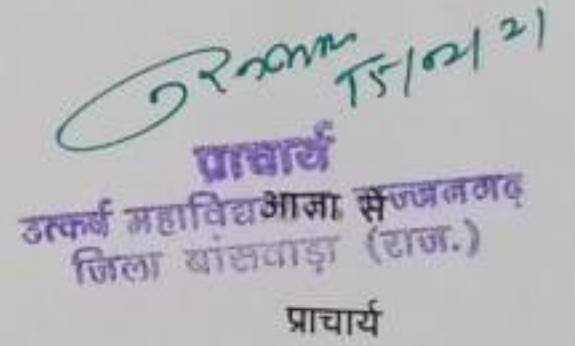 15/02/21
प्राचार्य
उत्कर्ष महाविद्य आज्ञा से सज्जनगढ़
जिला बांसवाड़ा (राज.)
प्राचार्य